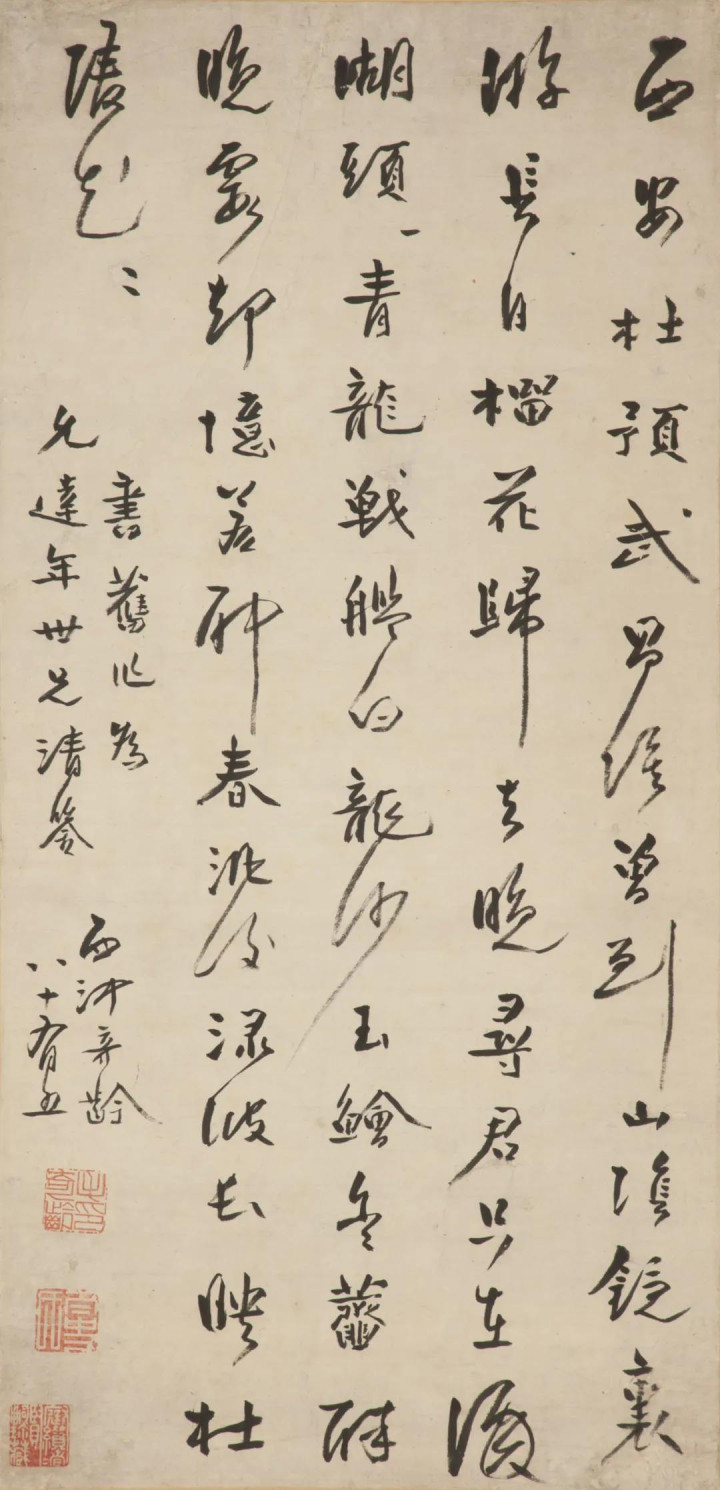 西安杜預武昌侯曾到山陰鏡裏
游長日榴花歸去晚尋君只在
湖頭一青龍戰艦白龍沙玉鱠金虀醉
晚霞却憶若耶春後渌波長映杜
陵花〻
書舊作為
允達年世兄清
西河奇齡
八十有五